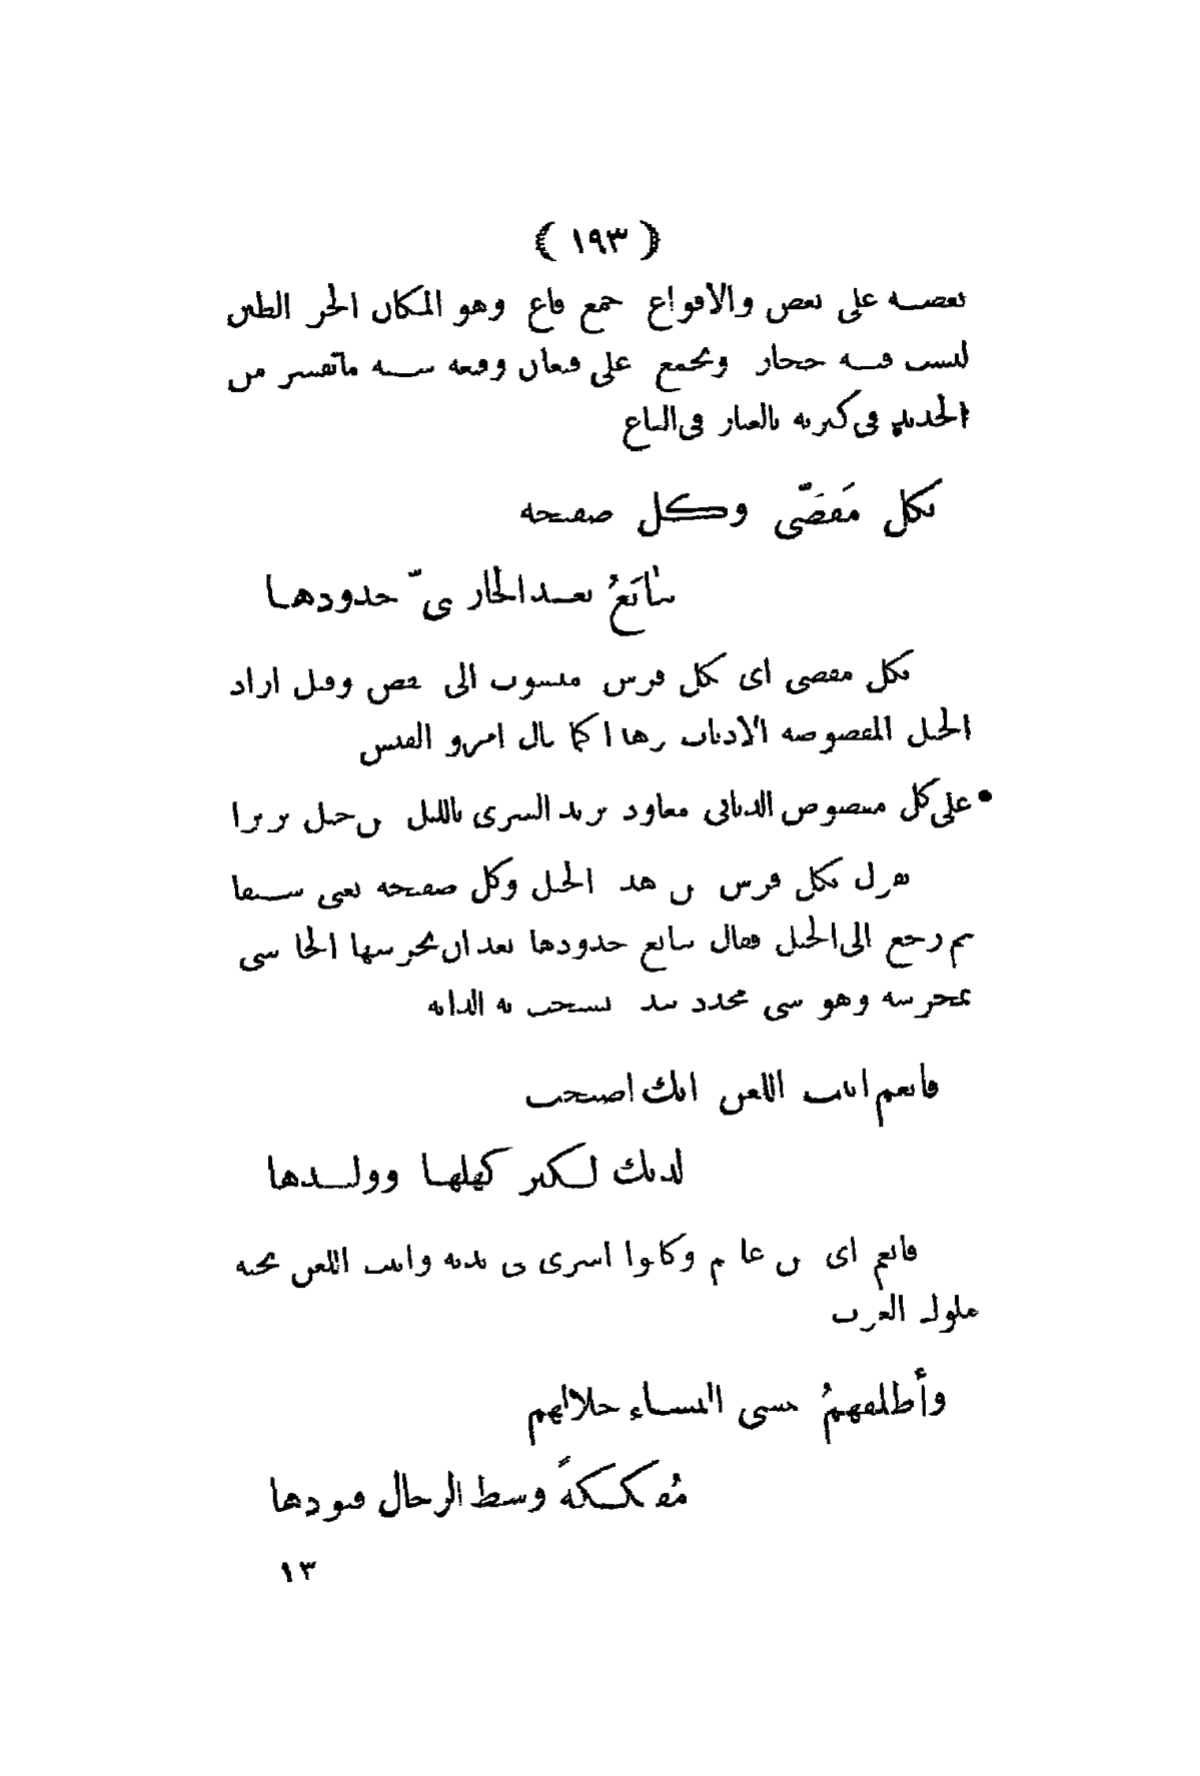 ﴿ ١٩٣ ﴾
بعضـه على بعض والاقواع جمع قاع وهو المكان الحر الطين
ليست فيـه حجار ويجمع على قيعان وقيعه شبـه ماتقشر من
الحديد في كيره بالغبار في القاع
بكل مَقَصّى وكل صفيحه
تتابَعُ بعـد الحارىّ حدودهـا
بكل مقصى اى بكل فرس منسوب الى قص وقيل اراد
الخيل المقصوصه الاذناب اكما قال امرو القيس
• على كل مقصوص الذنابى معاود بريد السرى بالليل من خيل بربرا
بكل فرس من هذ الخيل وكل صفيحه يعنى سـيفا
ثم رجع الى الخيل فقال تتابع حدودها بعد ان
وهو شى محدد تسحب به الدابه
فانعم ابيت اللعن انك اصبحت
لديك لـكبر كهلهـا وولـيدها
فانعم اى وكانوا اسرى فى يديه وابيت اللعن تحيه
ملوك العرب
وأطلقهمُ تمسى النسـاء خلالهم
مُفكـكةً وسط الرحال قيودها
١٣